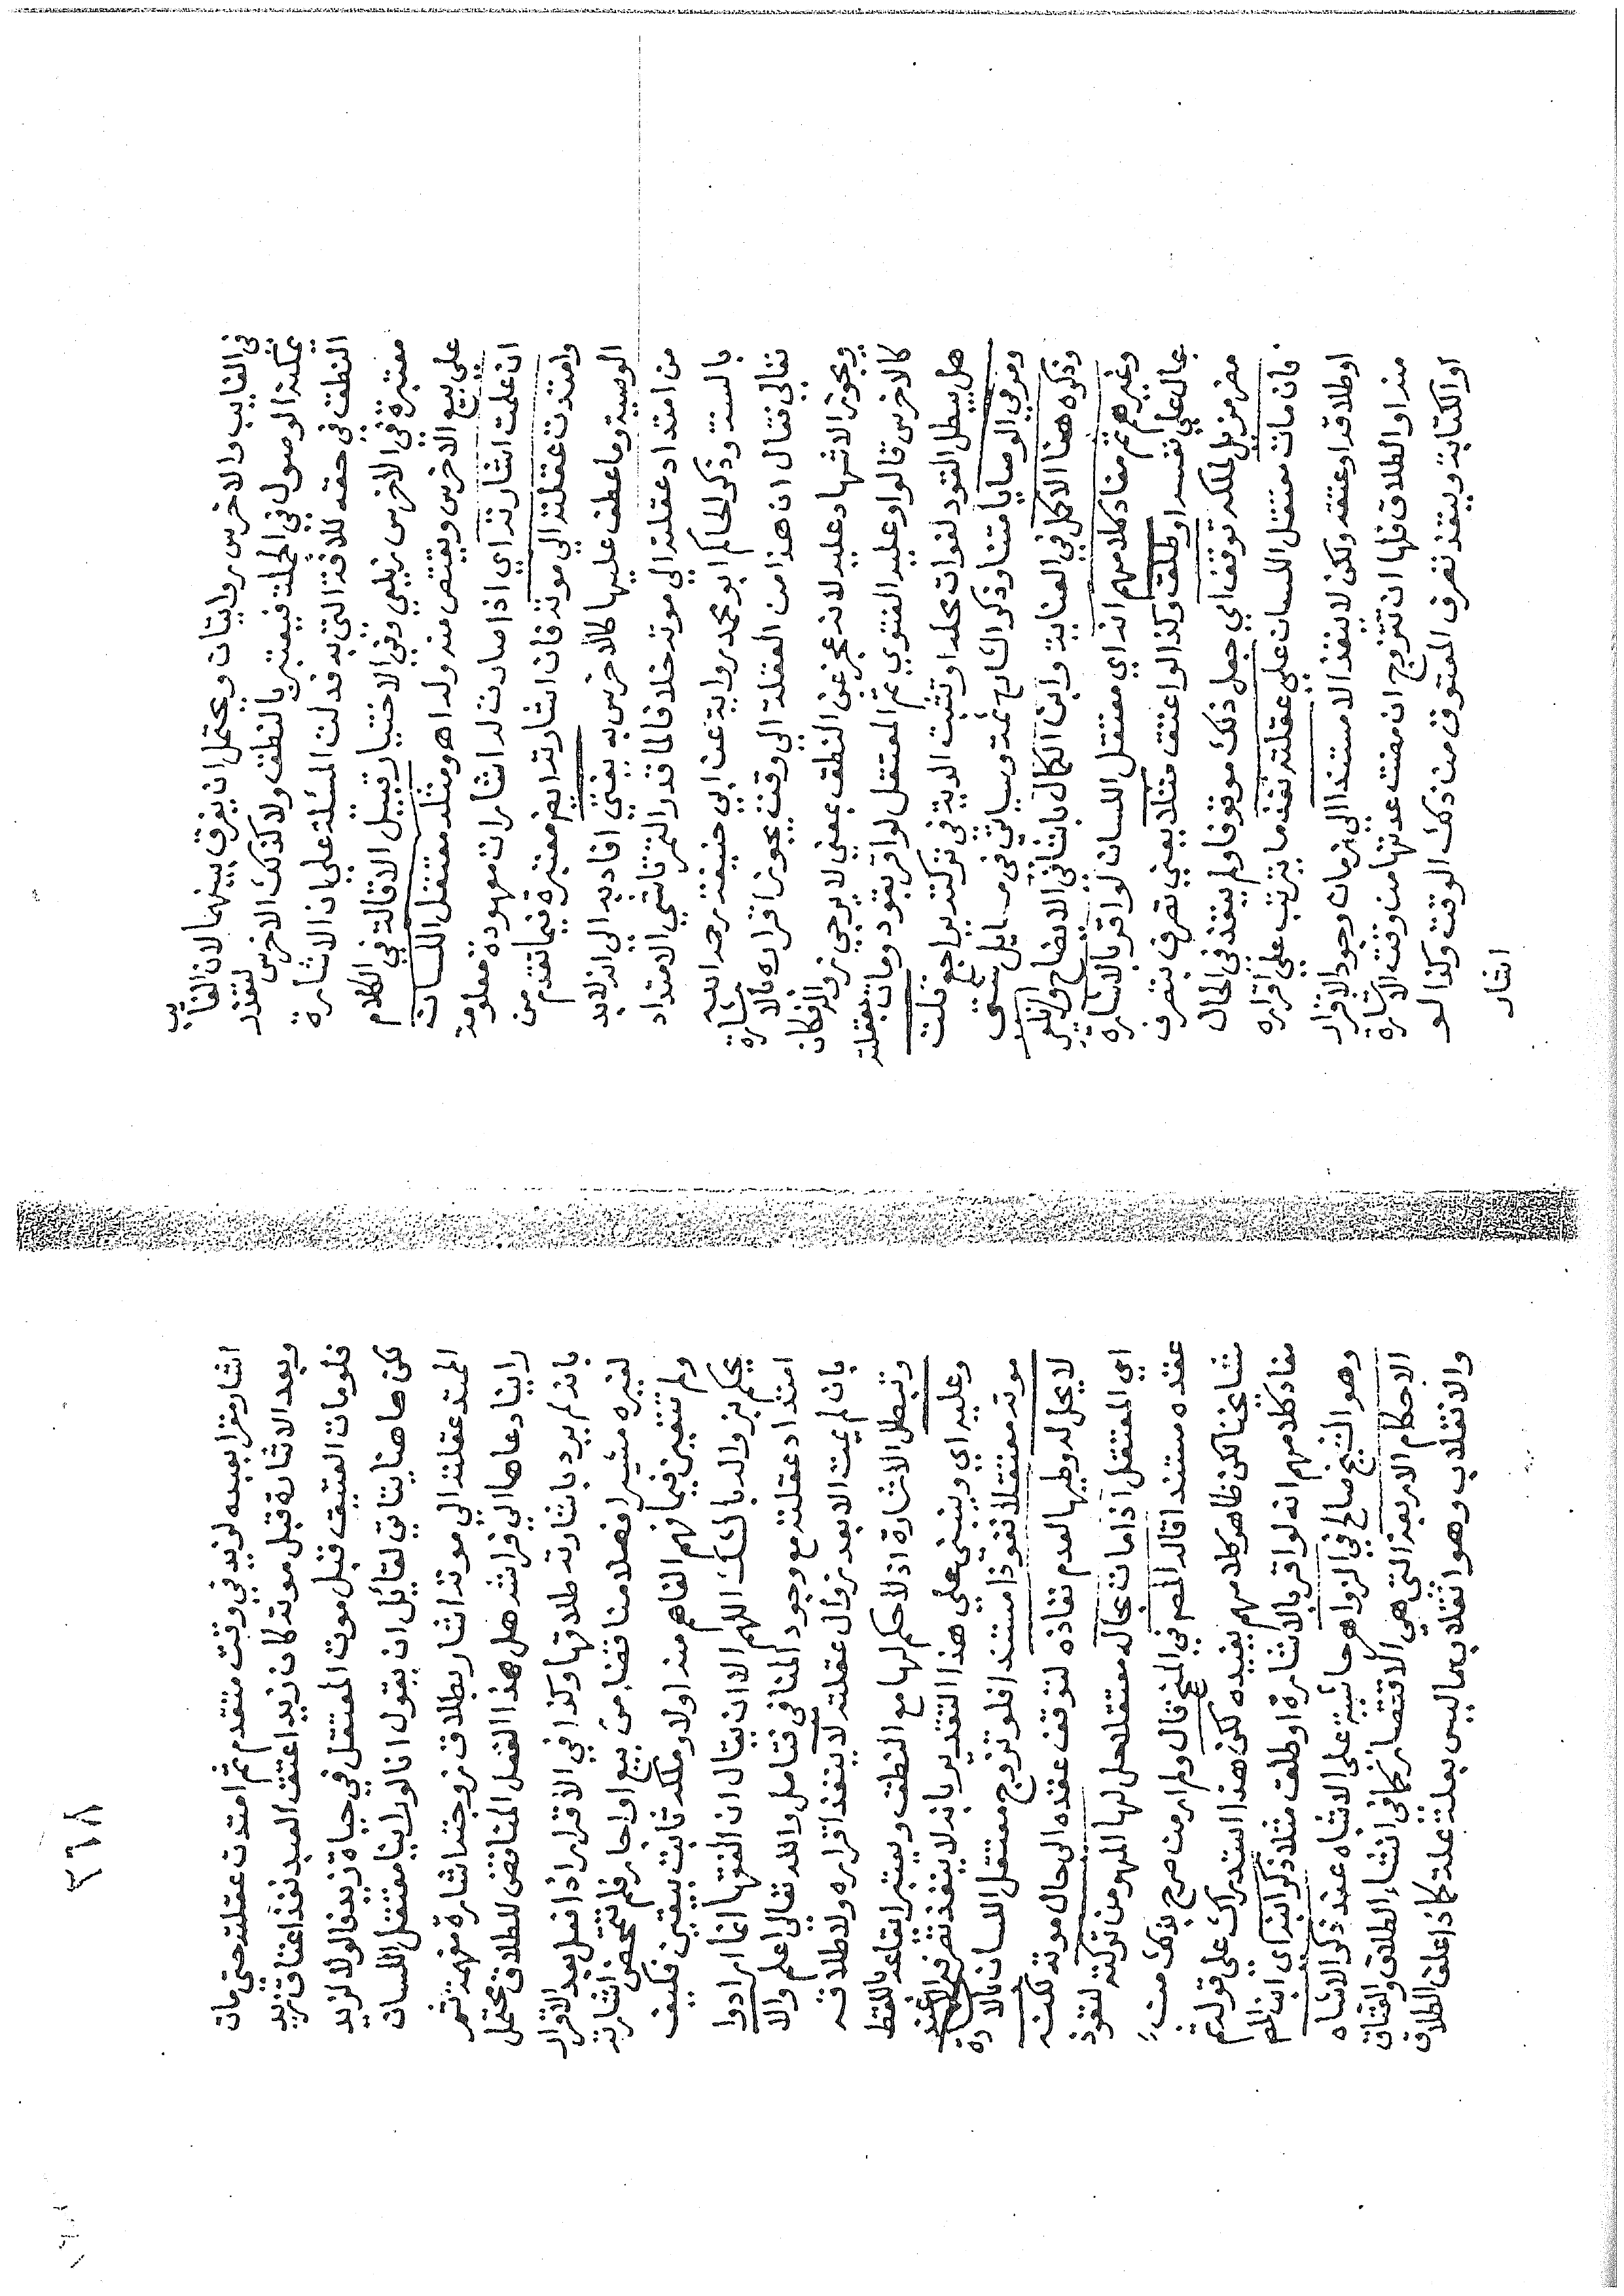 في الغايب والاخرس روايتان ويحتمل ان يفرق بينهما لان الغايب
يمكنه الوصول في الجملة فيعتبر بالنطق ولا كذلك الاخرس لتعذر
النطق في حقه للافة التي به فدلت المسئلة علي ان الاشارة
معتبرة في الاخرس زيلعي وفي الاختيار قبيل الاقالة في الكلام
علي بيع الاخرس ويقتص منه وله اه ومثله معتقل اللسان
ان علمت اشارته اي اذا صارت له اشارات معهودة معلومة
وامتدت عقلته الي موته فان اشارته ايضا معتبرة فيما تقدم من
الوصية وما عطف عليها كالاخرس به يفتي افاد به الي انه لابد
من امتداد عقلته الي موته خلافا لما قدر التمرتاشي الامتداد
بالسنة وذكر الحاكم ابو محمد رواية عن ابي حنيفة رحمه الله
تعالي فقال ان هذا من العقلة الي وقت يجوز اقراره بالاشارة
ويجوز الاشهاد عليه لانه عجز عن النطق بمعني لا يرجي زواله فكان
كالاخرس قالوا وعليه الفتوي ثم المعتقل لو اقر بقود ومات بعقلته
هل يبطل القود لفوات محله او تثبت الدية في تركته يراجع قلت
ومر في الوصايا متنا وذكر الشارح ثمة وسياتي في مسايل شتي
وذكره هنا الاكمل في العناية وابن الكمال باشا في الايضاح والزيلعي
وغيرهم ثم مفاد كلامهم انه اي معتقل اللسان لو اقر بالاشارة
بمال علي نفسه او طلق وكذا لو اعتق مثلا يعني تصرف بتصرف
مضر مزيل لملكه توقف اي جعل ذلك موقوفا ولم ينفذ في الحال
فان مات معتقل اللسان علي عقلته نفذ ما يترتب علي اقراره
او طلاقه او عتقه ولكن لا ينفذ الا مستندا الي زمان وجود الاقرار
منه او الطلاق فلها ان تتزوج ان مضت عدتها من وقت الاشارة
او الكتابة وينفذ تصرف المعتوق من ذلك الوقت وكذا لو
اشار
٢٦٨
اشار مقرا بعبده لزيد في وقت متقدم ثم امتدت عقلته حتي مات
وبعد الاشارة قبل موته كان زيد اعتق العبد نفذ اعتاق زيد
فلو مات العتيق قبل موت المعتقل في حياة زيد فالولا لزيد
لكن هاهنا يتاتي لقايل ان يقول انا لو راينا معتقل اللسان
الممتد عقلته الي موته اشار بطلاق زوجته اشارة مفهمة ثم
راينا دعاها الي فراشه هل هذا الفعل المناقض للطلاق يحتمل
بانه لم يرد باشارته طلاقها وكذا في الاقرار اذا فعل بعد الاقرار
لغيره مشيرا فعلا مناقضا من بيع او اجار فلم تتمحض اشارته
ولم تتعين فيما فهم الفاهم منه اولا وملكه ثابت بيقين فكيف
يحكم بزواله بالشك اللهم الا ان يقال ان الفقها انما ارادوا
امتداد عقلته مع وجود المنافي فتامل والله تعالي اعلم والا
بان لم يمت الا بعد زوال عقلته لا ينفذ اقراره ولا طلاقه
وتبطل الاشارة اذ لا حكم لها مع النطق ويعتبر ايقاعه باللفظ
وعليه اي ويبني علي هذا التقدير بانه لا ينفذ تصرفه الا عند
موته معتقلا نفوذا مستندا فلو تزوج معتقل اللسان بالاشارة
لا يحل له وطيها لعدم نفاذه لتوقف عقده الي حال موته لكنه
اي المعتقل اذا مات بحاله معتقلا حل لها المهر من تركته لنفوذ
عقده مستندا قاله المصم في المنح قال ولم ار من صرح بذلك من
مشايخنا لكن ظاهر كلامهم يفيده لكن هذا استدراك علي قوله ثم
مفاد كلامهم انه لو اقر بالاشارة او طلق مثلا ذكر ابنه اي ابن المصم
وهو الشيخ صالح في الزواهر حاشيته علي الاشباه عند ذكر الاشباه
الاحكام الاربعة التي هي الاقتصار كما في انشاء الطلاق والعتاق
والانقلاب وهو انقلاب ما ليس بعلة علة كما اذا علق الطلاق